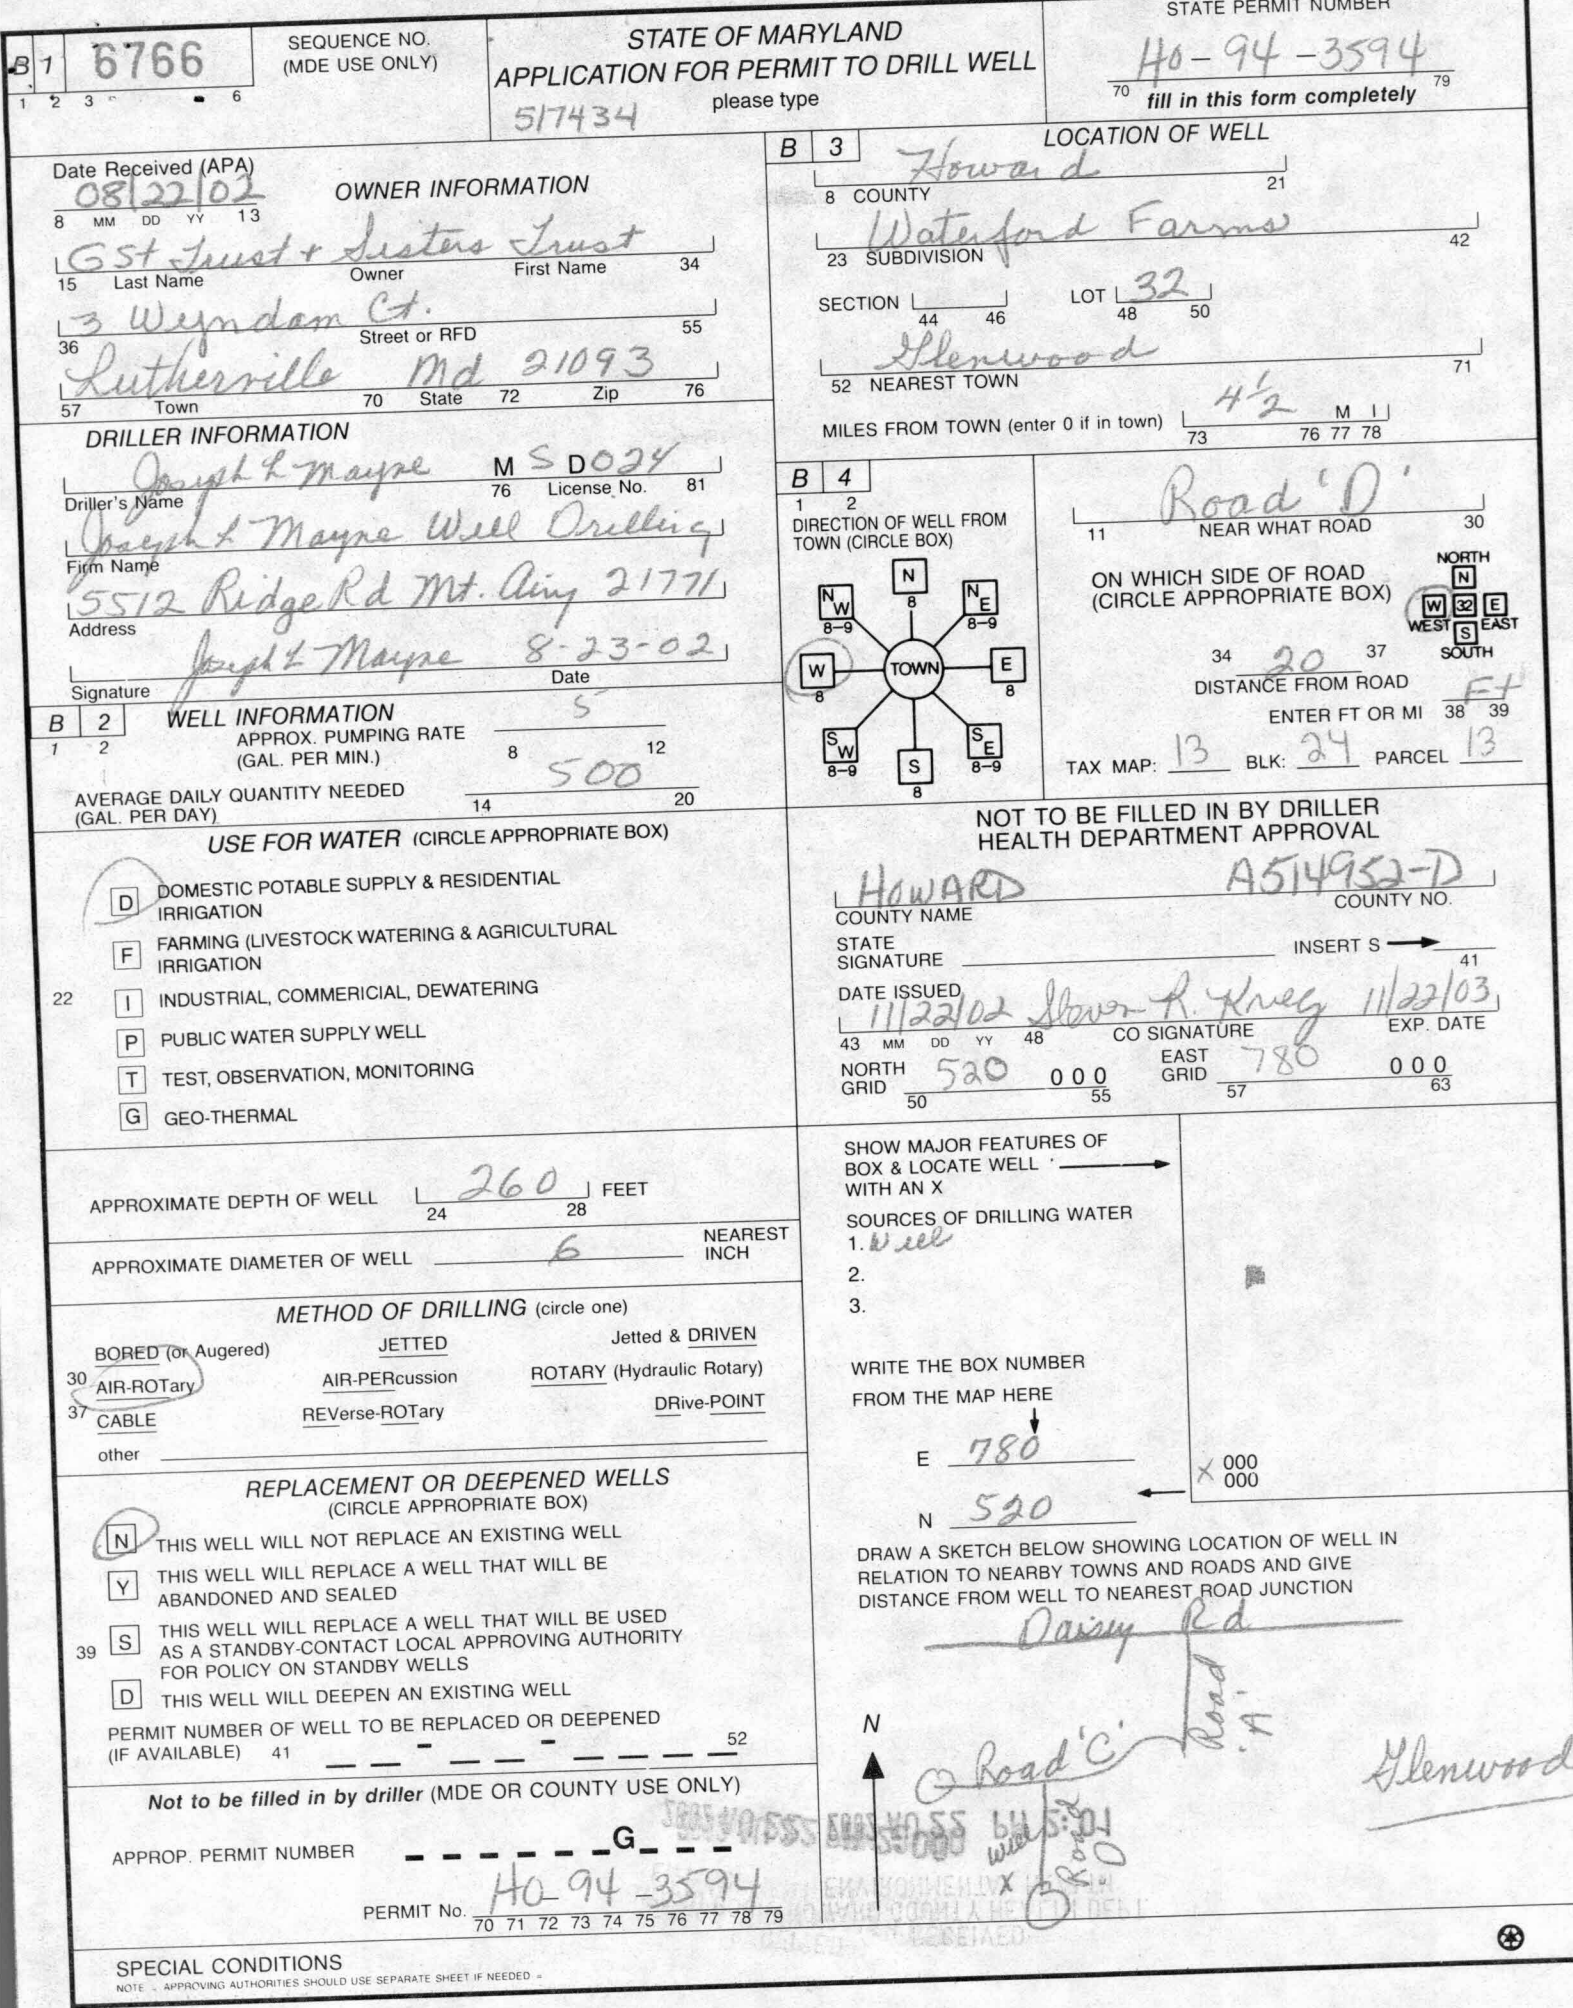 B 1 6766
1 2 3 6
SEQUENCE NO.
(MDE USE ONLY)
STATE OF MARYLAND
APPLICATION FOR PERMIT TO DRILL WELL
please type
517434
STATE PERMIT NUMBER
HO-94-3594
70 79
fill in this form completely
Date Received (APA)
08/22/02
8 MM DD YY 13
OWNER INFORMATION
GSt Trust + Sisters Trust
15 Last Name Owner First Name 34
3 Wyndam Ct.
36 Street or RFD 55
Lutherville Md 21093
57 Town 70 State 72 Zip 76
DRILLER INFORMATION
Joseph L Mayne M S D 024
Driller's Name 76 License No. 81
Joseph L Mayne Well Drilling
Firm Name
5512 Ridge Rd Mt. Airy 21771
Address
Joseph L Mayne 8-23-02
Signature Date
B 2
1 2
WELL INFORMATION
APPROX. PUMPING RATE
(GAL. PER MIN.)
5
8 12
AVERAGE DAILY QUANTITY NEEDED
(GAL. PER DAY)
500
14 20
USE FOR WATER (CIRCLE APPROPRIATE BOX)
D DOMESTIC POTABLE SUPPLY & RESIDENTIAL
IRRIGATION
F FARMING (LIVESTOCK WATERING & AGRICULTURAL
IRRIGATION
22
I INDUSTRIAL, COMMERICIAL, DEWATERING
P PUBLIC WATER SUPPLY WELL
T TEST, OBSERVATION, MONITORING
G GEO-THERMAL
APPROXIMATE DEPTH OF WELL 260 FEET
24 28
APPROXIMATE DIAMETER OF WELL 6 NEAREST
INCH
METHOD OF DRILLING (circle one)
BORED (or Augered) JETTED Jetted & DRIVEN
30 AIR-ROTary AIR-PERcussion ROTARY (Hydraulic Rotary)
37 CABLE REVerse-ROTary DRive-POINT
other
REPLACEMENT OR DEEPENED WELLS
(CIRCLE APPROPRIATE BOX)
N THIS WELL WILL NOT REPLACE AN EXISTING WELL
Y THIS WELL WILL REPLACE A WELL THAT WILL BE
ABANDONED AND SEALED
39 S THIS WELL WILL REPLACE A WELL THAT WILL BE USED
AS A STANDBY-CONTACT LOCAL APPROVING AUTHORITY
FOR POLICY ON STANDBY WELLS
D THIS WELL WILL DEEPEN AN EXISTING WELL
PERMIT NUMBER OF WELL TO BE REPLACED OR DEEPENED
(IF AVAILABLE) 41 52
Not to be filled in by driller (MDE OR COUNTY USE ONLY)
APPROP. PERMIT NUMBER G
PERMIT No. HO-94-3594
70 71 72 73 74 75 76 77 78 79
SPECIAL CONDITIONS
NOTE - APPROVING AUTHORITIES SHOULD USE SEPARATE SHEET IF NEEDED =
B 3
LOCATION OF WELL
Howard
8 COUNTY 21
Waterford Farms
23 SUBDIVISION 42
SECTION LOT 32
44 46 48 50
Glenwood
52 NEAREST TOWN 71
MILES FROM TOWN (enter 0 if in town) 4 1/2 M I
73 76 77 78
B 4
1 2
DIRECTION OF WELL FROM
TOWN (CIRCLE BOX)
N
8
NW
8-9
NE
8-9
W
8
TOWN
E
8
SW
8-9
S
8
SE
8-9
Road 'D'
11 NEAR WHAT ROAD 30
ON WHICH SIDE OF ROAD
(CIRCLE APPROPRIATE BOX)
NORTH
N
W 32 E
WEST EAST
S
SOUTH
34 20 37
DISTANCE FROM ROAD
ENTER FT OR MI Ft
38 39
TAX MAP: 13 BLK: 24 PARCEL 13
NOT TO BE FILLED IN BY DRILLER
HEALTH DEPARTMENT APPROVAL
HOWARD A514952-D
COUNTY NAME COUNTY NO.
STATE
SIGNATURE INSERT S
41
DATE ISSUED
11/22/02 Steven R. Krieg 11/22/03
43 MM DD YY 48 CO SIGNATURE EXP. DATE
NORTH
GRID 520 000
50 55
EAST
GRID 780 000
57 63
SHOW MAJOR FEATURES OF
BOX & LOCATE WELL
WITH AN X
SOURCES OF DRILLING WATER
1. Well
2.
3.
WRITE THE BOX NUMBER
FROM THE MAP HERE
E 780
N 520
X 000
000
DRAW A SKETCH BELOW SHOWING LOCATION OF WELL IN
RELATION TO NEARBY TOWNS AND ROADS AND GIVE
DISTANCE FROM WELL TO NEAREST ROAD JUNCTION
Daisey Rd
Road 'A'
N
Road 'C'
Glenwood
Well
X
Road 'D'